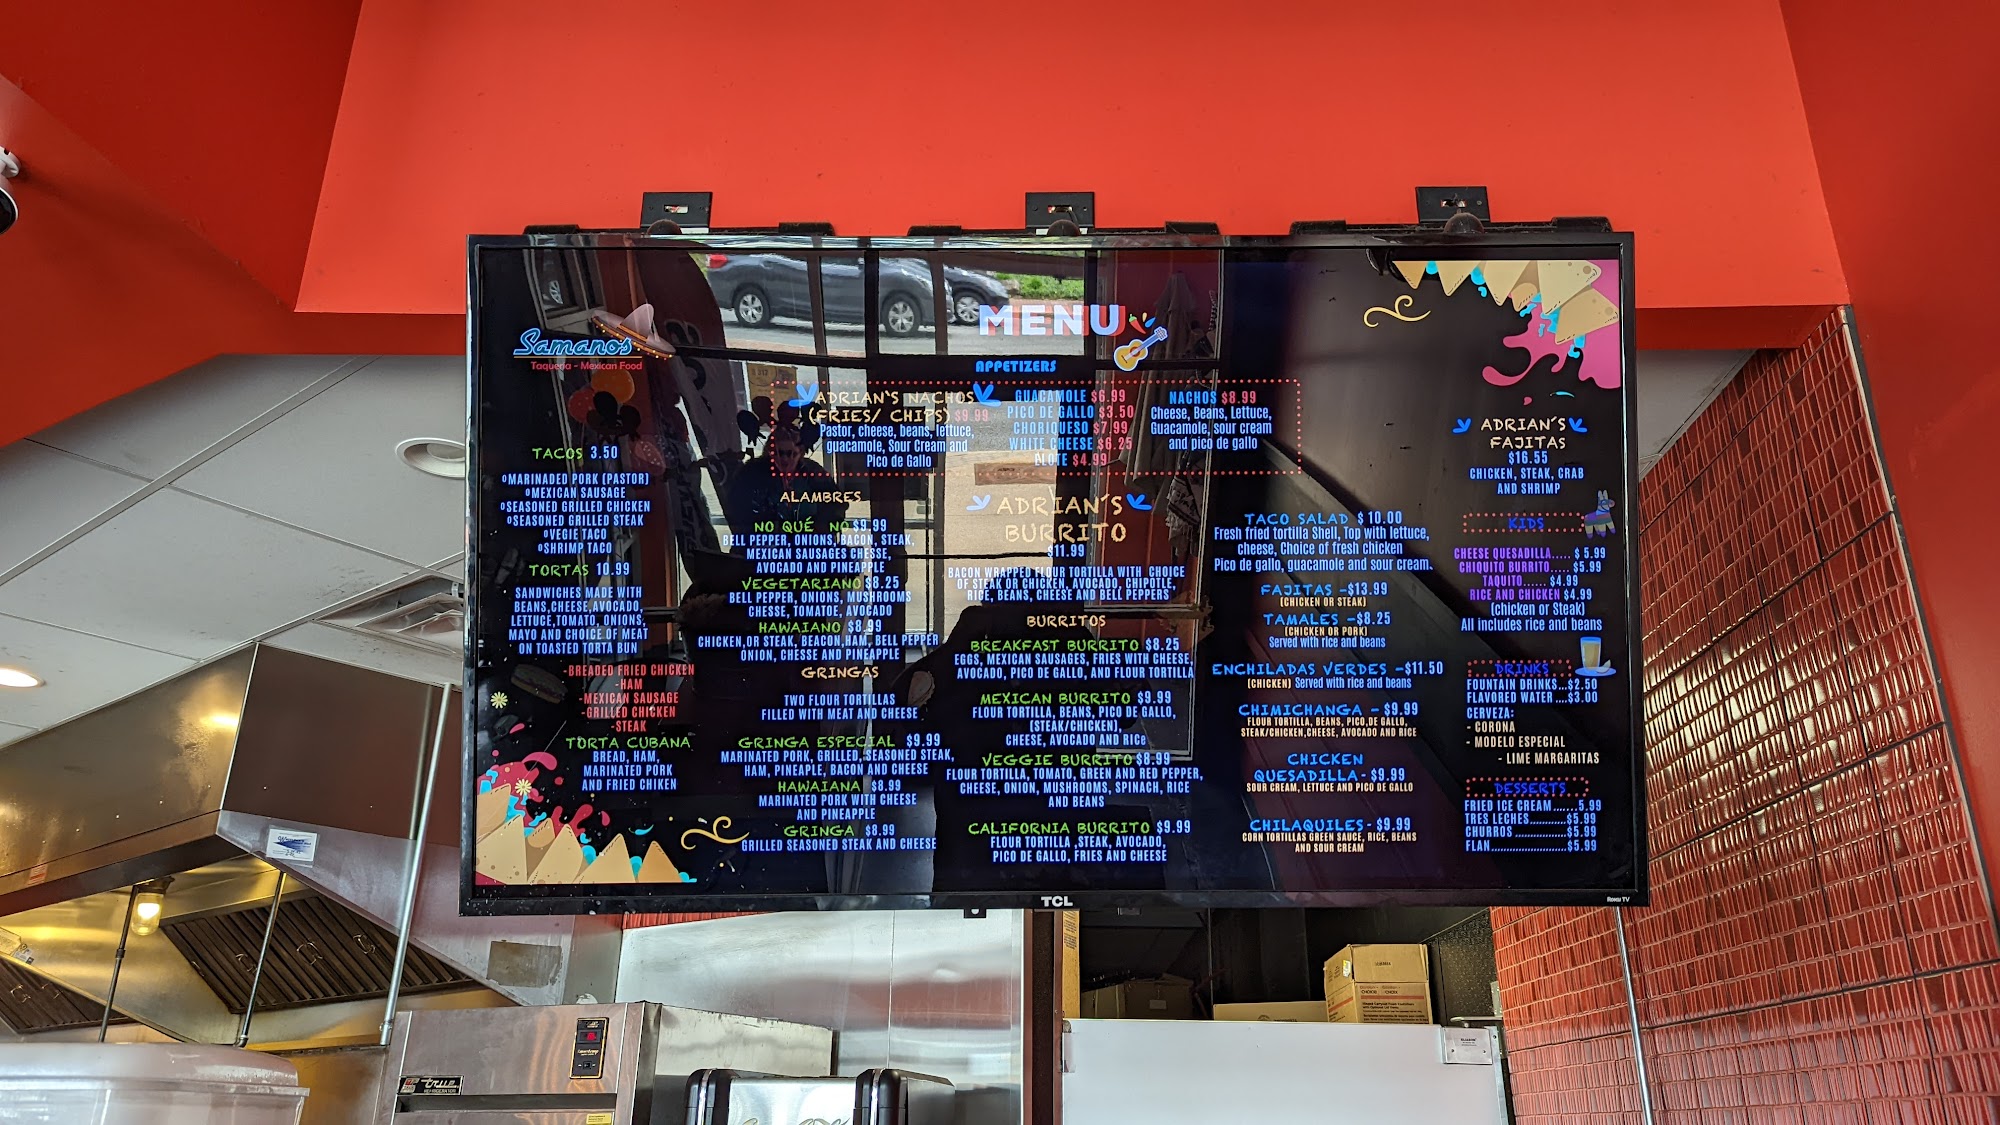 Samano's
Taqueria - Mexican Food
MENU
APPETIZERS
ADRIAN'S NACHOS
(FRIES/ CHIPS) $9.99
Pastor, cheese, beans, lettuce,
guacamole, Sour Cream and
Pico de Gallo
GUACAMOLE $6.99
PICO DE GALLO $3.50
CHORIQUESO $7.99
WHITE CHEESE $6.25
ELOTE $4.99
NACHOS $8.99
Cheese, Beans, Lettuce,
Guacamole, sour cream
and pico de gallo
TACOS 3.50
ºMARINADED PORK (PASTOR)
ºMEXICAN SAUSAGE
ºSEASONED GRILLED CHICKEN
ºSEASONED GRILLED STEAK
ºVEGIE TACO
ºSHRIMP TACO
TORTAS 10.99
SANDWICHES MADE WITH
BEANS,CHEESE,AVOCADO,
LETTUCE,TOMATO, ONIONS,
MAYO AND CHOICE OF MEAT
ON TOASTED TORTA BUN
-BREADED FRIED CHICKEN
-HAM
-MEXICAN SAUSAGE
-GRILLED CHICKEN
-STEAK
TORTA CUBANA
BREAD, HAM,
MARINATED PORK
AND FRIED CHIKEN
ALAMBRES
NO QUÉ NO $9.99
BELL PEPPER, ONIONS, BACON, STEAK,
MEXICAN SAUSAGES CHESSE,
AVOCADO AND PINEAPPLE
VEGETARIANO $8.25
BELL PEPPER, ONIONS, MUSHROOMS
CHESSE, TOMATOE, AVOCADO
HAWAIANO $8.99
CHICKEN,OR STEAK, BEACON,HAM, BELL PEPPER
ONION, CHESSE AND PINEAPPLE
GRINGAS
TWO FLOUR TORTILLAS
FILLED WITH MEAT AND CHEESE
GRINGA ESPECIAL $9.99
MARINATED PORK, GRILLED, SEASONED STEAK,
HAM, PINEAPLE, BACON AND CHEESE
HAWAIANA $8.99
MARINATED PORK WITH CHEESE
AND PINEAPPLE
GRINGA $8.99
GRILLED SEASONED STEAK AND CHEESE
ADRIAN'S
BURRITO
$11.99
BACON WRAPPED FLOUR TORTILLA WITH CHOICE
OF STEAK OR CHICKEN, AVOCADO, CHIPOTLE,
RICE, BEANS, CHEESE AND BELL PEPPERS
BURRITOS
BREAKFAST BURRITO $8.25
EGGS, MEXICAN SAUSAGES, FRIES WITH CHEESE,
AVOCADO, PICO DE GALLO, AND FLOUR TORTILLA
MEXICAN BURRITO $9.99
FLOUR TORTILLA, BEANS, PICO DE GALLO,
(STEAK/CHICKEN),
CHEESE, AVOCADO AND RICe
VEGGIE BURRITO $8.99
FLOUR TORTILLA, TOMATO, GREEN AND RED PEPPER,
CHEESE, ONION, MUSHROOMS, SPINACH, RICE
AND BEANS
CALIFORNIA BURRITO $9.99
FLOUR TORTILLA ,STEAK, AVOCADO,
PICO DE GALLO, FRIES AND CHEESE
TACO SALAD $ 10.00
Fresh fried tortilla Shell, Top with lettuce,
cheese, Choice of fresh chicken
Pico de gallo, guacamole and sour cream.
FAJITAS -$13.99
(CHICKEN OR STEAK)
TAMALES -$8.25
(CHICKEN OR PORK)
Served with rice and beans
ENCHILADAS VERDES -$11.50
(CHICKEN) Served with rice and beans
CHIMICHANGA - $9.99
FLOUR TORTILLA, BEANS, PICO,DE GALLO,
STEAK/CHICKEN,CHEESE, AVOCADO AND RICE
CHICKEN
QUESADILLA- $9.99
SOUR CREAM, LETTUCE AND PICO DE GALLO
CHILAQUILES- $9.99
CORN TORTILLAS GREEN SAUCE, RICE, BEANS
AND SOUR CREAM
ADRIAN'S
FAJITAS
$16.55
CHICKEN, STEAK, CRAB
AND SHRIMP
KIDS
CHEESE QUESADILLA..... $ 5.99
CHIQUITO BURRITO..... $5.99
TAQUITO...... $4.99
RICE AND CHICKEN $4.99
(chicken or Steak)
All includes rice and beans
DRINKS
FOUNTAIN DRINKS...$2.50
FLAVORED WATER ....$3.00
CERVEZA:
- CORONA
- MODELO ESPECIAL
- LIME MARGARITAS
DESSERTS
FRIED ICE CREAM.......5.99
TRES LECHES...........$5.99
CHURROS ...............$5.99
FLAN.......................$5.99
TCL
Roku TV
true